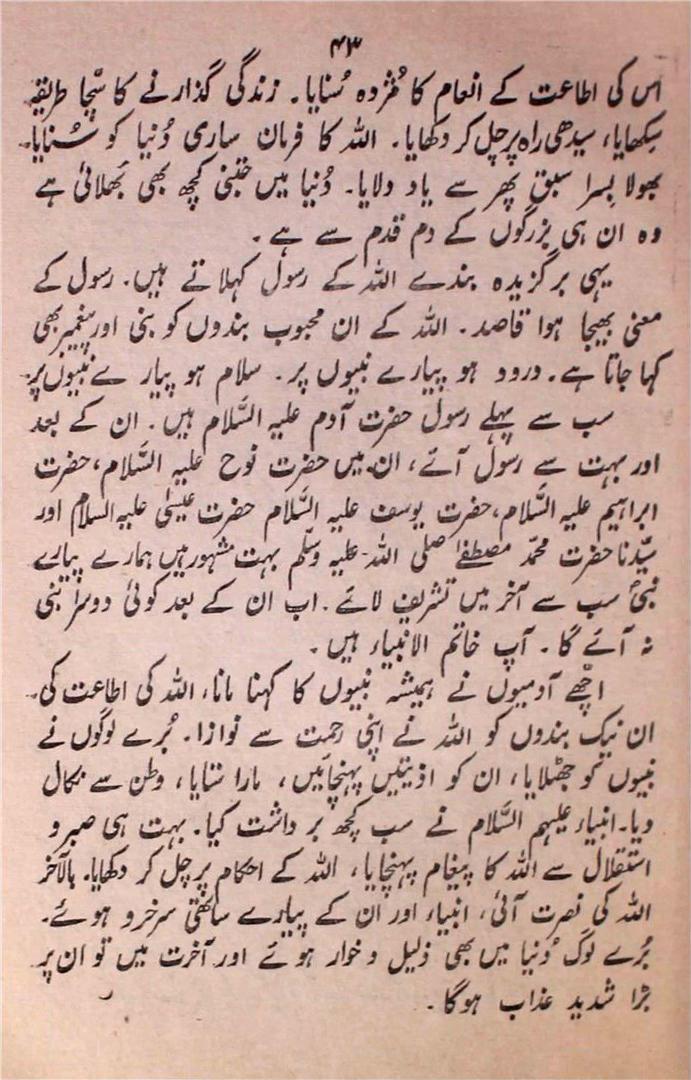 ۴۳
اس کی اطاعت کے انعام کا مُژدہ سُنایا۔ زندگی گذارنے کا سچّا طریقہ
سِکھایا، سیدھی راہ پر چل کر دکھایا۔ اللہ کا فرمان ساری دُنیا کو سُنایا۔
بھولا بِسرا سبق پھر سے یاد دلایا۔ دُنیا میں جتنی کچھ بھی بھلائی ہے
وہ ان ہی بزرگوں کے دم قدم سے ہے۔
یہی برگزیدہ بندے اللہ کے رسول کہلاتے ہیں۔ رسول کے
معنی بھیجا ہوا قاصد۔ اللہ کے ان محبوب بندوں کو نبی اور پیغمبر بھی
کہا جاتا ہے۔ درود ہو پیارے نبیوں پر۔ سلام ہو پیارے نبیوں پر۔
سب سے پہلے رسول حضرت آدم علیہ السَّلام ہیں۔ ان کے بعد
اور بہت سے رسول آئے، ان میں حضرت نوح علیہ السَّلام، حضرت
ابراہیم علیہ السَّلام، حضرت یوسف علیہ السَّلام حضرت عیسیٰ علیہ السلام اور
سیّدنا حضرت محمّد مصطفےٰ صلی اللہ علیہ وسلّم بہت مشہور ہیں ہمارے پیارے
نبیؐ سب سے آخر میں تشریف لائے۔ اب ان کے بعد کوئی دوسرا نبی
نہ آئے گا۔ آپ خاتم الانبیاء ہیں۔
اچّھے آدمیوں نے ہمیشہ نبیوں کا کہنا مانا، اللہ کی اطاعت کی۔
ان نیک بندوں کو اللہ نے اپنی رحمت سے نوازا۔ بُرے لوگوں نے
نبیوں کو جھٹلایا، ان کو اذیتیں پہنچائیں، مارا ستایا، وطن سے نکال
دیا۔ انبیاء علیہم السَّلام نے سب کچھ برداشت کیا۔ بہت ہی صبر و
استقلال سے اللہ کا پیغام پہنچایا، اللہ کے احکام پر چل کر دکھایا۔ بالآخر
اللہ کی نصرت آئی، انبیاء اور ان کے پیارے ساتھی سرخرو ہوئے۔
بُرے لوگ دُنیا میں بھی ذلیل و خوار ہوئے اور آخرت میں تو ان پر
بڑا شدید عذاب ہوگا۔